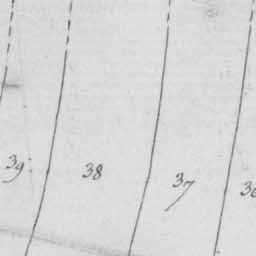 39 38 37